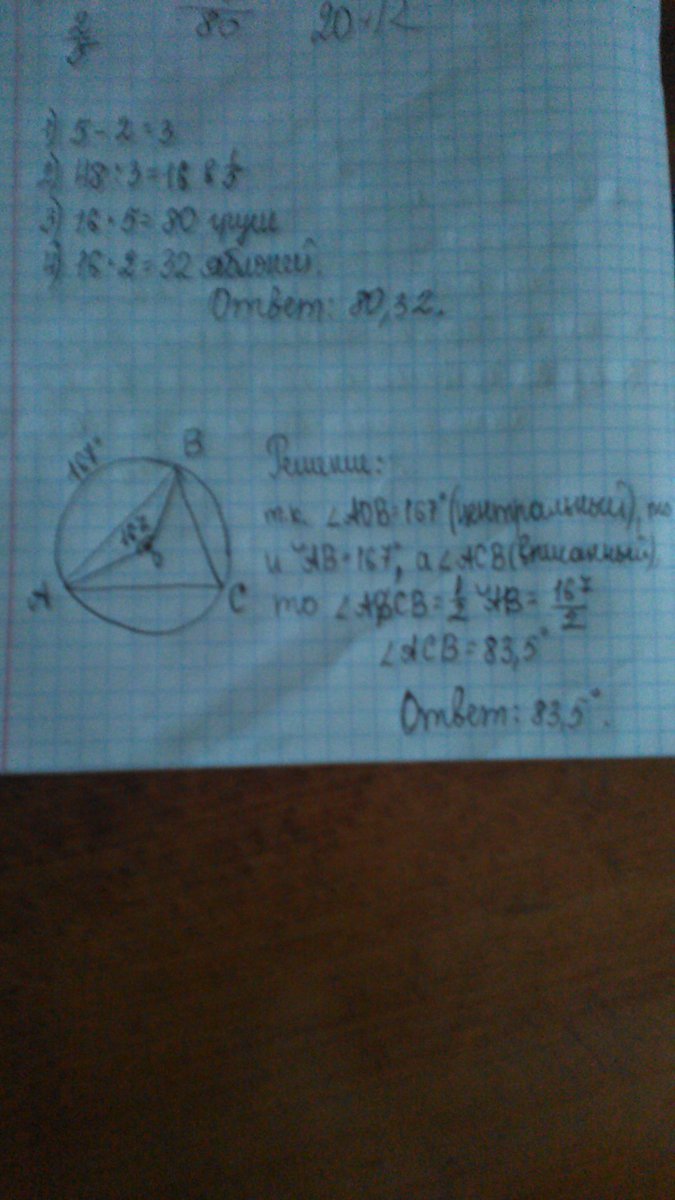 80
20
1) 5 - 2 = 3
2) 48 : 3 = 16
3) 16 · 5 = 80 груш
4) 16 · 2 = 32 яблоней.
Ответ: 80, 32.
167°
B
167
O
A
C
Решение:
т.к. ∠AOB = 167° (центральный), то
и ◡AB = 167°, а ∠ACB (вписанный)
то ∠ACB = 1/2 ◡AB = 167/2
∠ACB = 83,5°
Ответ: 83,5°.